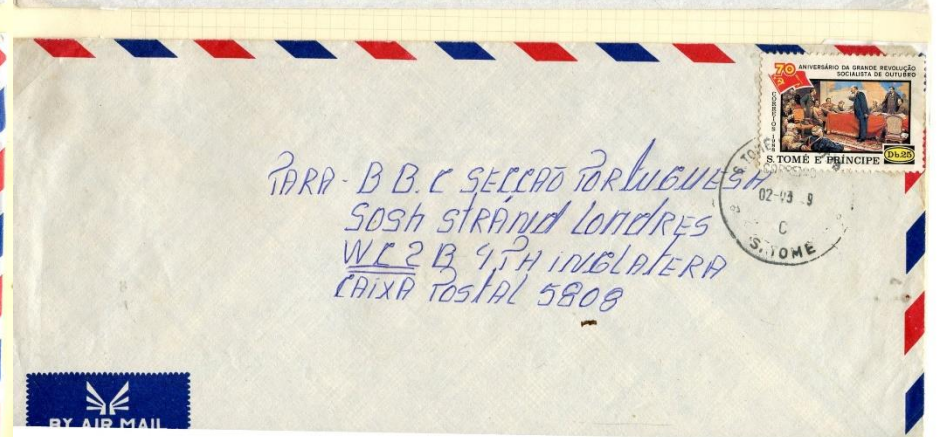 70 ANIVERSÁRIO DA GRANDE REVOLUÇÃO
SOCIALISTA DE OUTUBRO
CORREIOS 1988
Db.25
S. TOMÉ E PRÍNCIPE
S. TOMÉ
02-03 9
C
S. TOMÉ
PARA - B B. C SECCAO PORTUGUESA
SOSH STRÁND LONDRES
WC2 B 4PH INGLATERA
CAIXA POSTAL 5808
BY AIR MAIL